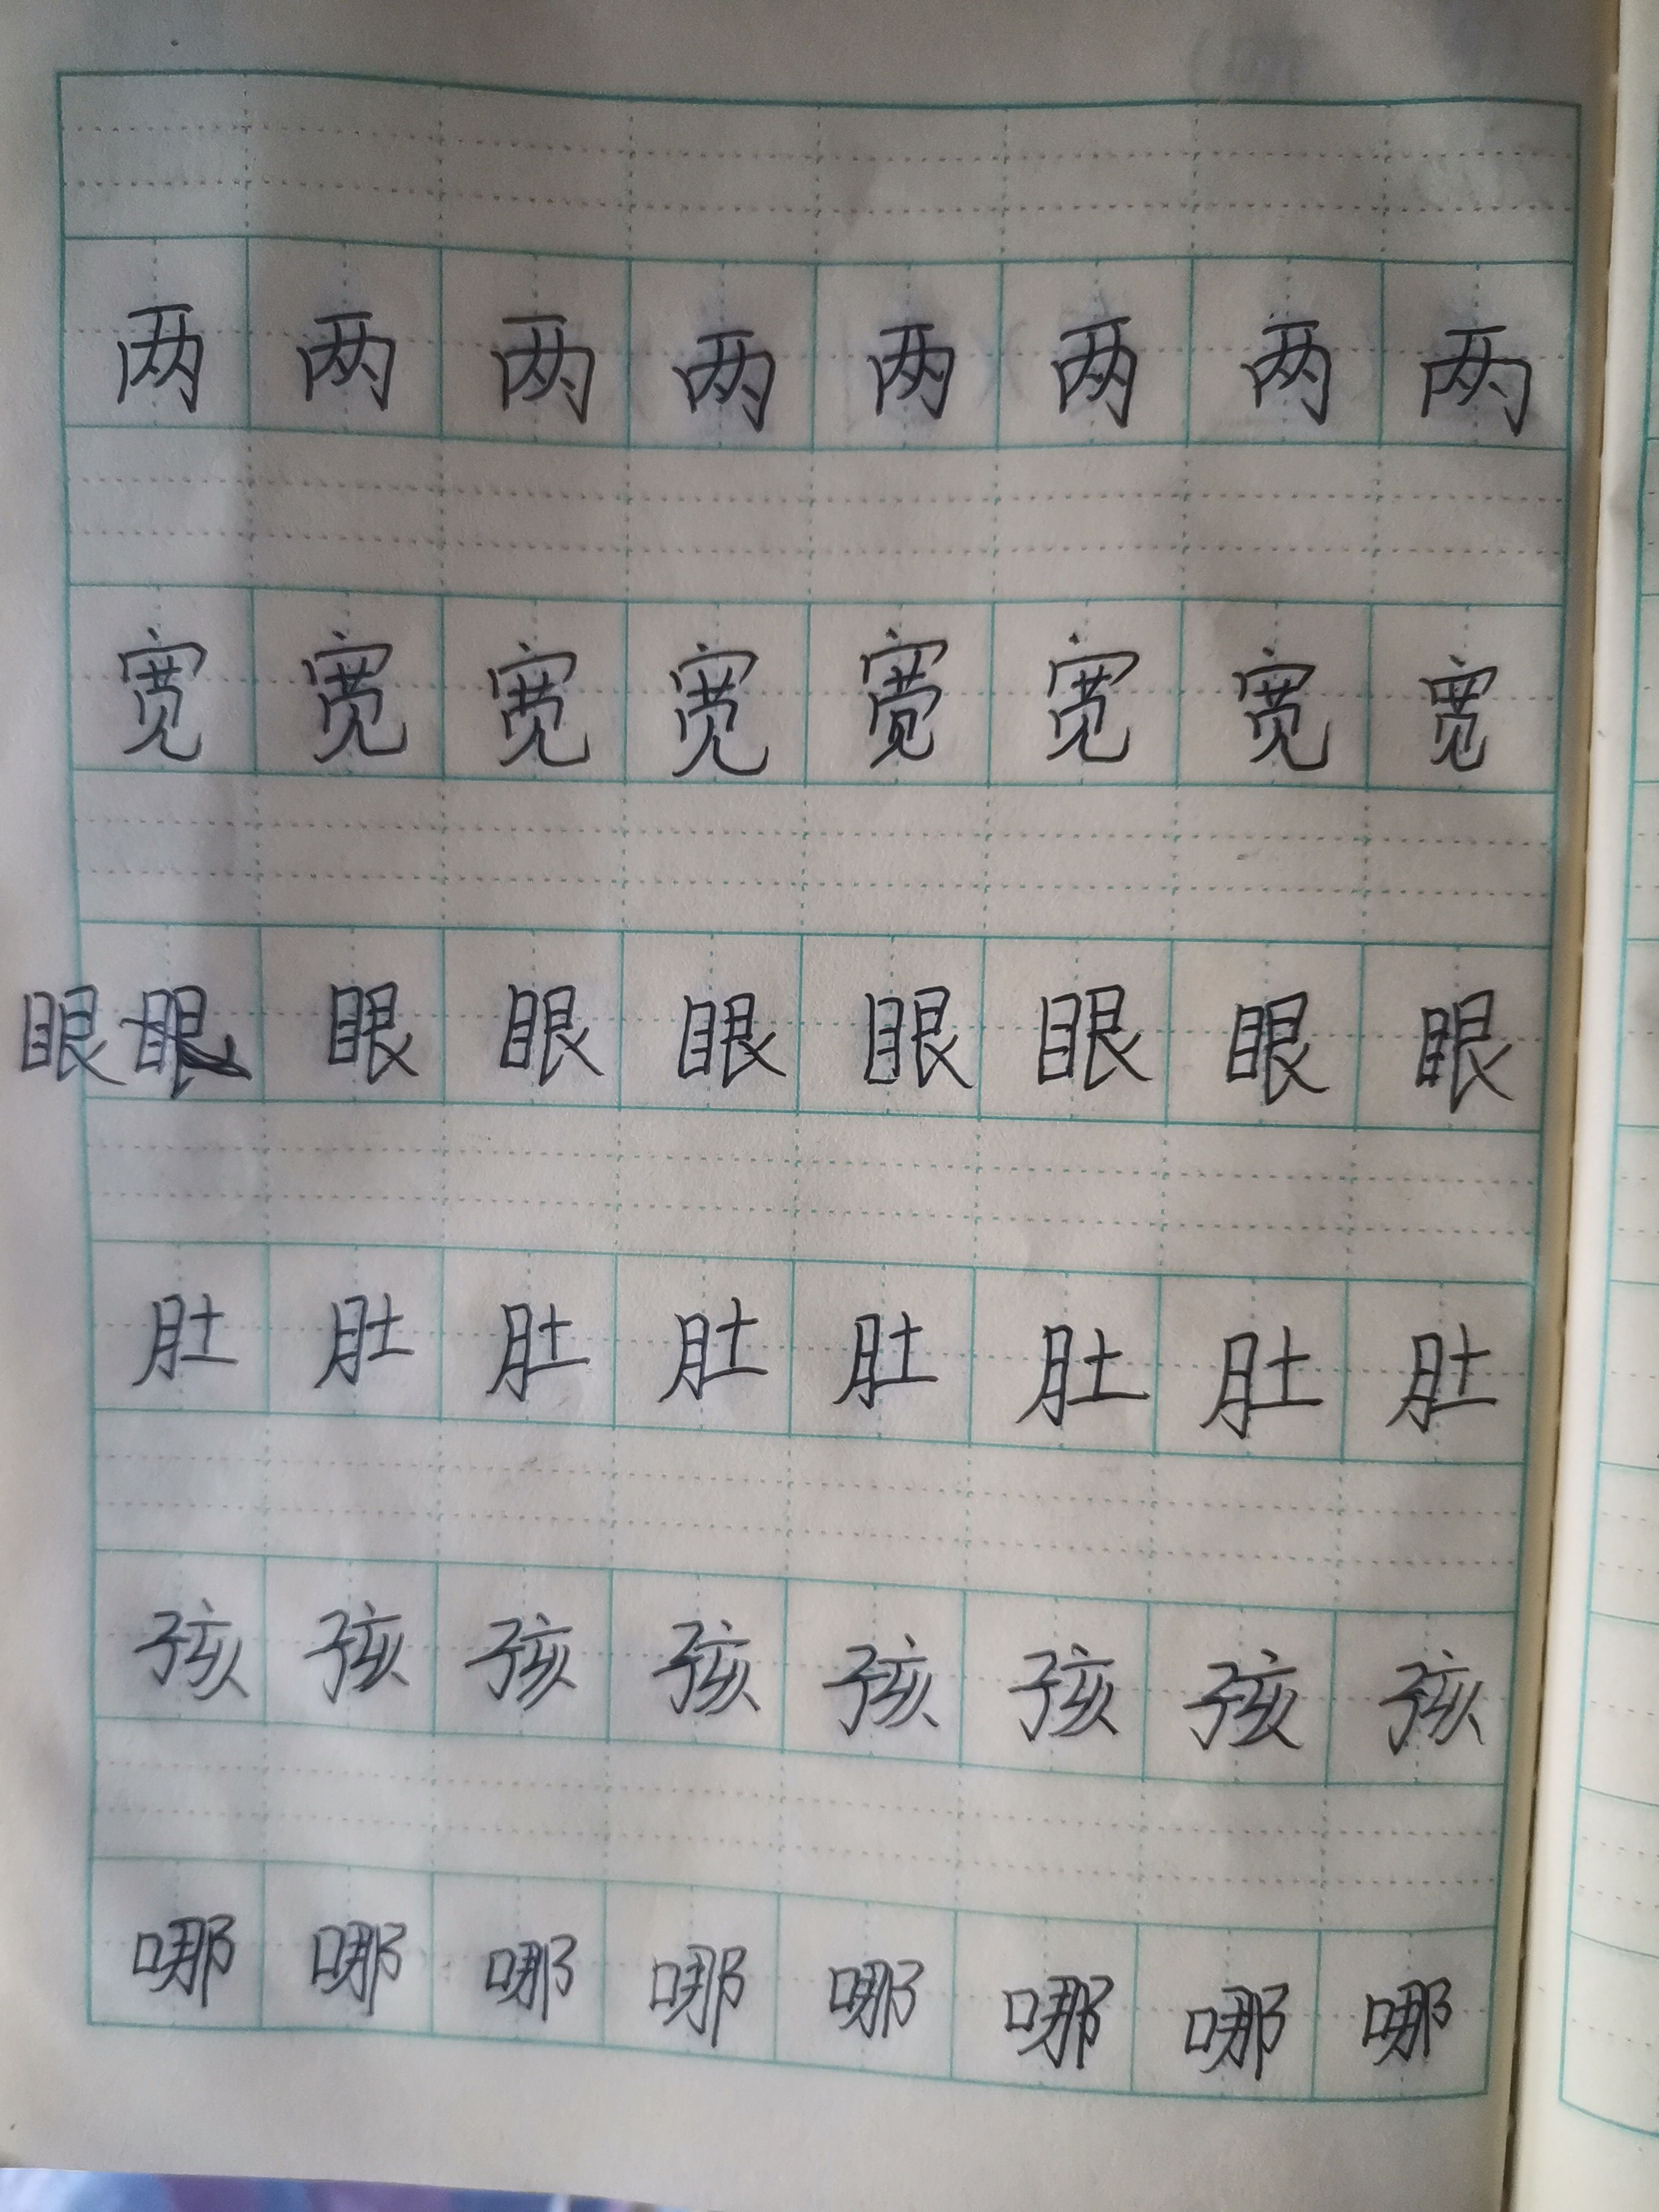 两两两两两两两两
宽宽宽宽宽宽宽宽
眼眼眼眼眼眼眼眼眼
肚肚肚肚肚肚肚肚
孩孩孩孩孩孩孩孩
哪哪哪哪哪哪哪哪